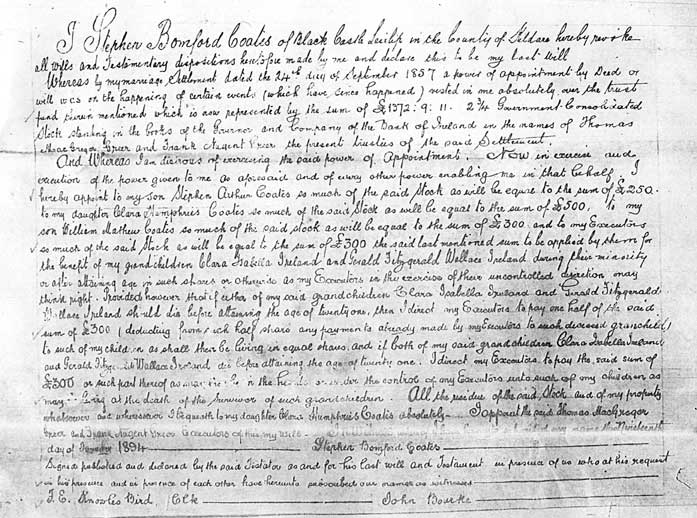 I Stephen Bomford Coates of Black Castle Leixlip in the County of Kildare hereby revoke
all wills and Testamentary dispositions heretofore made by me and declare this to be my last will
Whereas by my marriage Settlement dated the 24th day of September 1857 a power of appointment by Deed or
will was on the happening of certain events (which have since happened) vested in me absolutely over the trust
fund therein mentioned which is now represented by the sum of £1372.9.11. 2¾ Government Consolidated
Stock standing in the books of the Governor and Company of the Bank of Ireland in the names of Thomas
MacGregor Greer and Frank Nugent Greer the present trustees of the said Settlement.
And Whereas I am desirous of exercising the said power of Appointment. Now in exercise and
execution of the power given to me as aforesaid and of every other power enabling me in that behalf I
hereby appoint to my son Stephen Arthur Coates so much of the said Stock as will be equal to the sum of £250.
to my daughter Clara Humphries Coates so much of the said Stock as will be equal to the sum of £500, to my
son William Mathew Coates so much of the said stock as will be equal to the sum of £300 and to my Executors
so much of the said Stock as will be equal to the sum of £300 the said last mentioned sum to be applied by them for
the benefit of my grandchildren Clara Isabella Ireland and Gerald Fitzgerald Wallace Ireland during their minority
or after attaining age in such shares or otherwise as my Executors in the exercise of their uncontrolled discretion may
think right. Provided however that if either of my said grandchildren Clara Isabella Ireland and Gerald Fitzgerald
Wallace Ireland should die before attaining the age of twenty one, then I direct my Executors to pay one half of the said
sum of £300 (deducting from such half share any payments already made by my Executors to such deceased grandchild)
to such of my children as shall then be living in equal shares and if both of my said grandchildren Clara Isabella Ireland
and Gerald Wallace Ireland die before attaining the age of twenty one. I direct my Executors to pay the said sum of
£300 or such part thereof as may be in the hands or under the control of my Executors unto such of my children as
may be living at the death of the survivor of such grandchildren. All the residue of the said Stock and of my property
whatsoever and wheresoever I bequeath to my daughter Clara Humphries Coates absolutely. I appoint the said Thomas MacGregor
Greer and Frank Nugent Greer Executors of this my will my name this Nineteenth
day of 1894 Stephen Bomford Coates
Signed published and declared by the said Testator as and for his last will and Testament in presence of us who at his request
in his presence and in presence of each other have hereunto subscribed our names as witnesses
T. E. Knowles Bird, Clk John Bourke